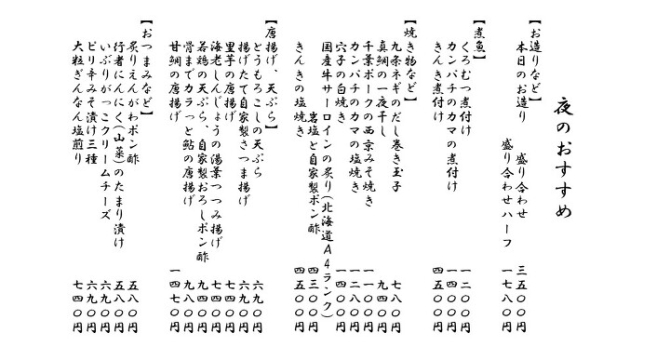 夜のおすすめ
【お造りなど】
本日のお造り 盛り合わせ 三五〇〇円
盛り合わせハーフ 一七八〇円
【煮魚】
くろむつ煮付け 一二〇〇円
カンパチのカマの煮付け 一四〇〇円
きんき煮付け 四五〇〇円
【焼き物など】
九条ネギのだし巻き玉子 七八〇円
真鯛の一夜干し 九四〇円
千葉ポークの西京みそ焼き 一一〇〇円
カンパチのカマの塩焼き 一二八〇円
穴子の白焼き 一四〇〇円
国産牛サーロインの炙り(北海道A4ランク)
岩塩と自家製ポン酢 四三〇〇円
きんきの塩焼き 四五〇〇円
【唐揚げ、天ぷら】
とうもろこしの天ぷら 六九〇円
揚げたて自家製さつま揚げ 六九〇円
里芋の唐揚げ 七四〇円
海老しんじょうの湯葉つつみ揚げ 七四〇円
若鶏の天ぷら、自家製おろしポン酢 九四〇円
骨までカラっと鮎の唐揚げ 九八〇円
甘鯛の唐揚げ 一四七〇円
【おつまみなど】
炙りえんがわポン酢 五八〇円
行者にんにく(山菜)のたまり漬け 五八〇円
いぶりがっこクリームチーズ 六九〇円
ピリ辛みそ漬け三種 六九〇円
大粒ぎんなん塩煎り 七四〇円